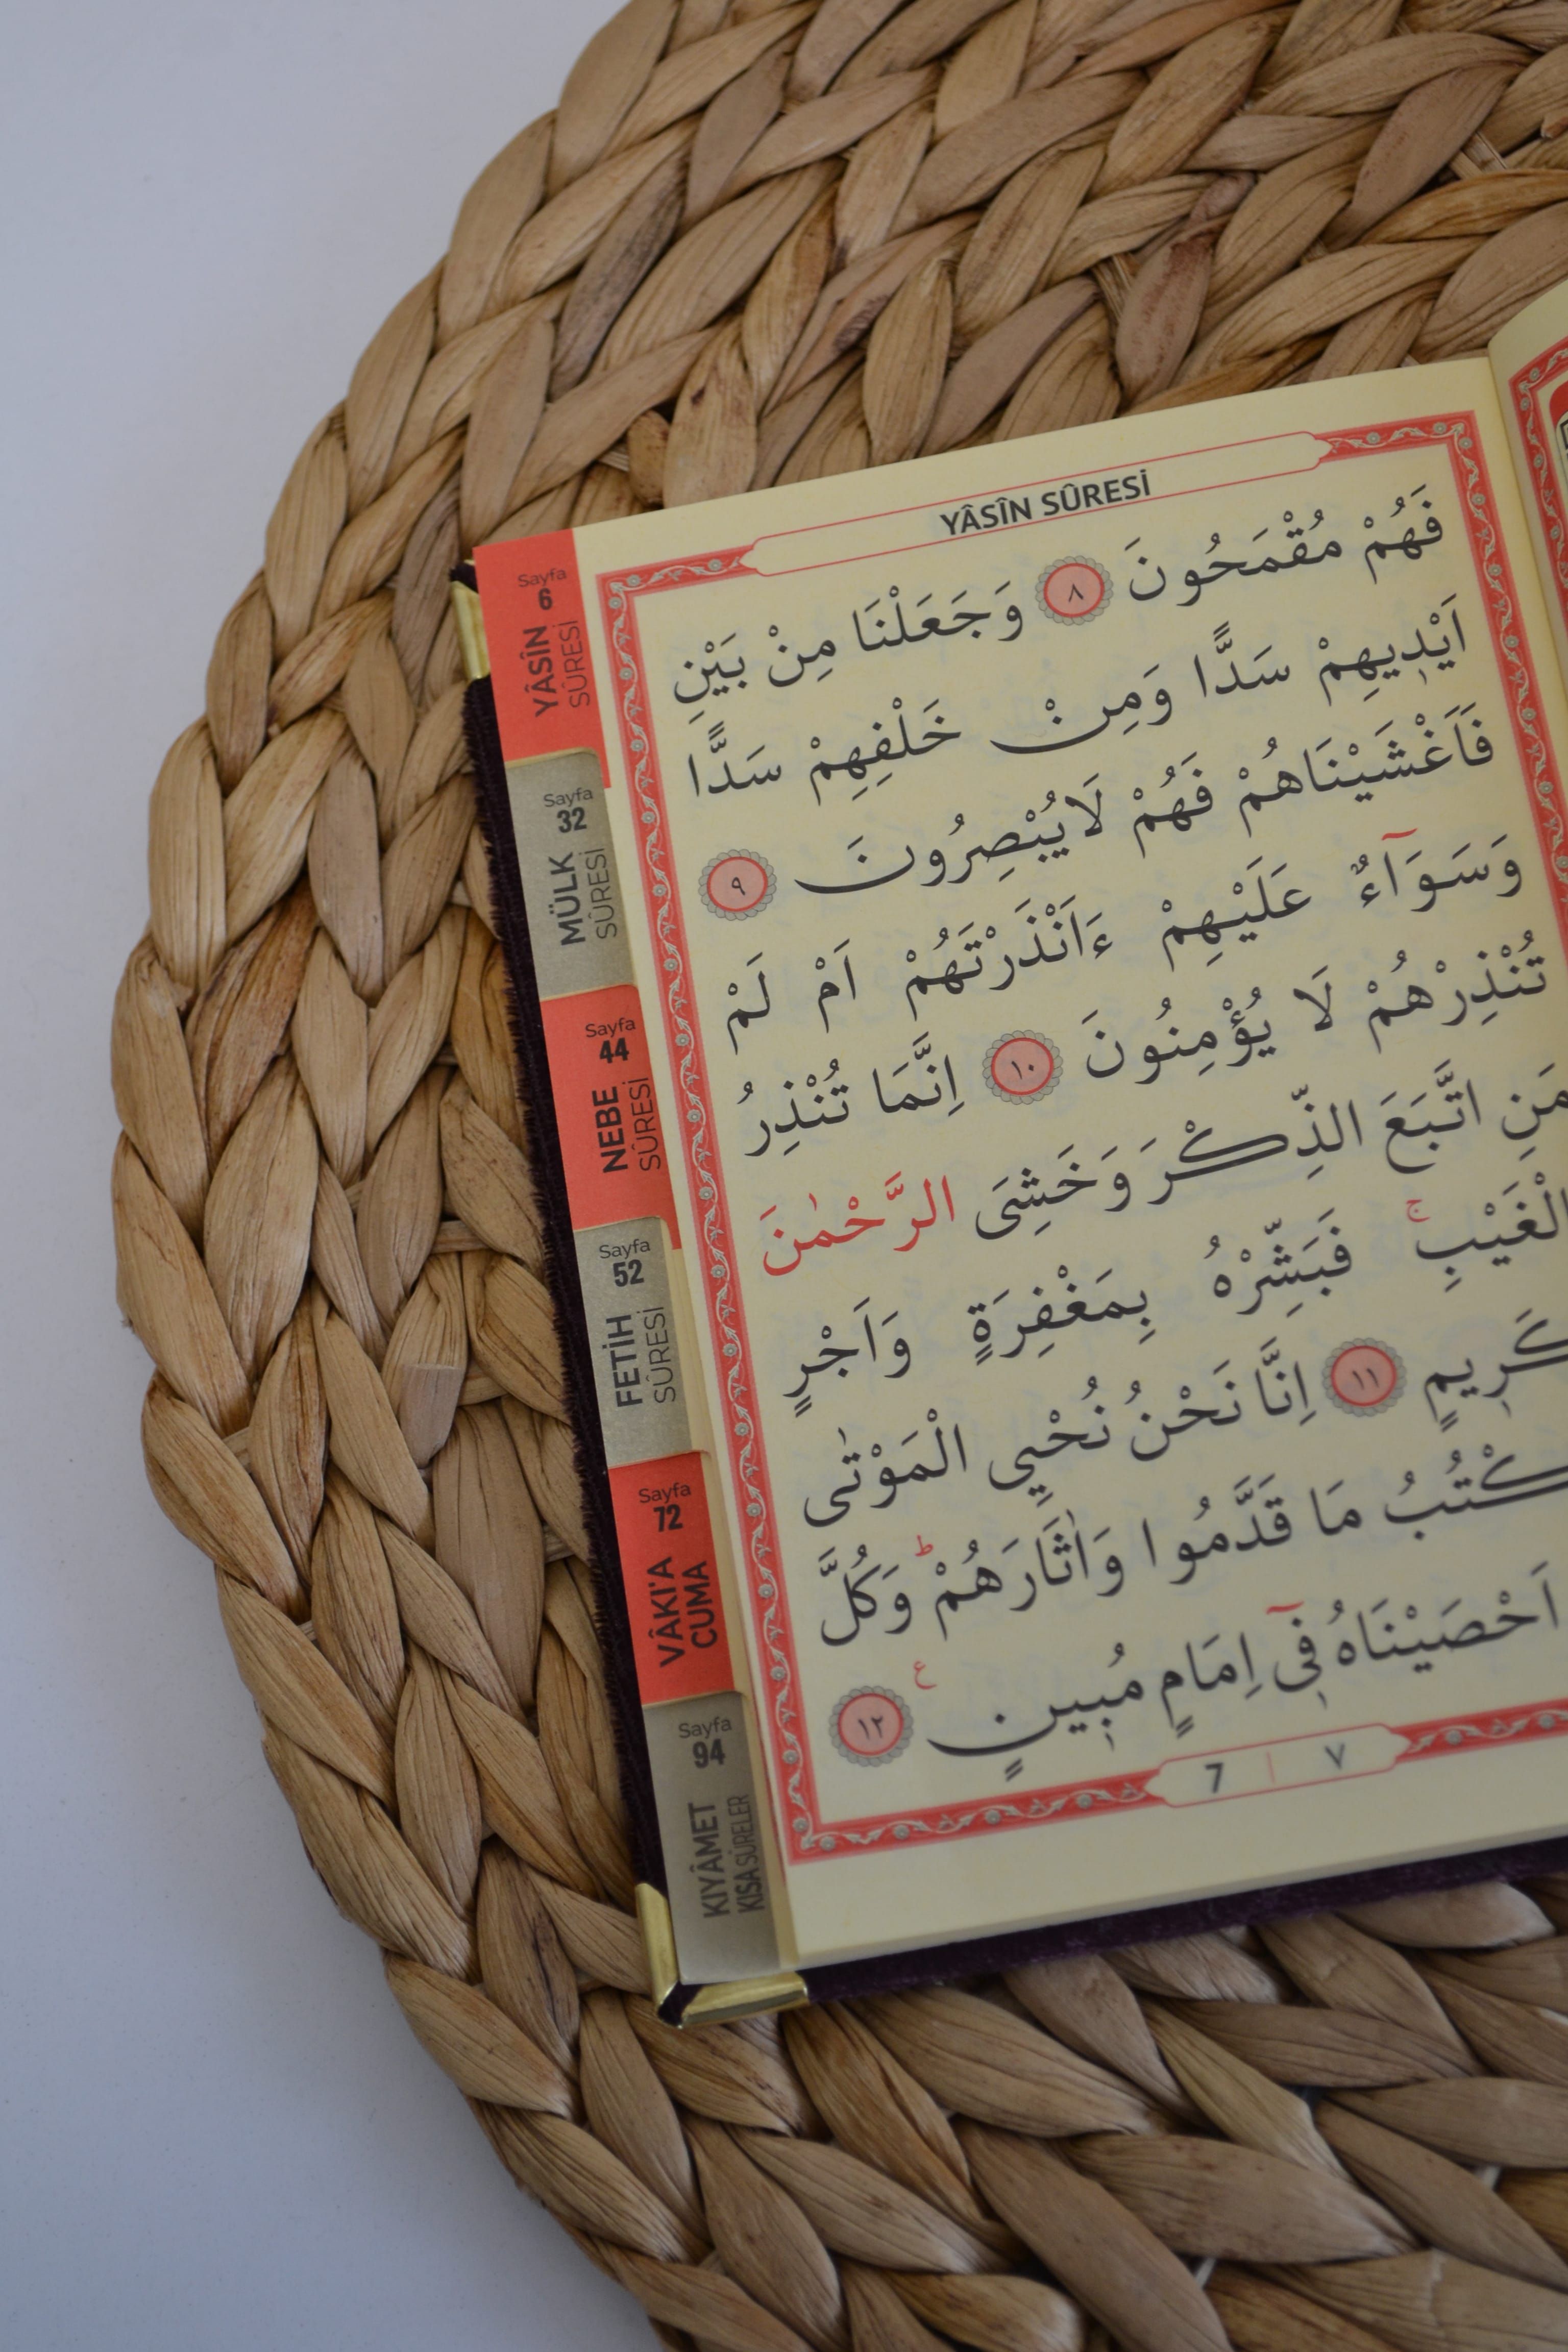 YÂSÎN SÛRESİ
فَهُمْ مُقْمَحُونَ ٨ وَجَعَلْنَا مِنْ بَيْنِ
اَيْد۪يهِمْ سَدًّا وَمِنْ خَلْفِهِمْ سَدًّا
فَاَغْشَيْنَاهُمْ فَهُمْ لَايُبْصِرُونَ ٩
وَسَوَٓاءٌ عَلَيْهِمْ ءَاَنْذَرْتَهُمْ اَمْ لَمْ
تُنْذِرْهُمْ لَا يُؤْمِنُونَ ١٠ اِنَّمَا تُنْذِرُ
مَنِ اتَّبَعَ الذِّكْرَ وَخَشِىَ الرَّحْمٰنَ
لْغَيْبِۚ فَبَشِّرْهُ بِمَغْفِرَةٍ وَاَجْرٍ
كَر۪يمٍ ١١ اِنَّا نَحْنُ نُحْيِي الْمَوْتٰى
كْتُبُ مَا قَدَّمُوا وَاٰثَارَهُمْۜ وَكُلَّ
اَحْصَيْنَاهُ ف۪ٓى اِمَامٍ مُب۪ينٍ ع ١٢
7 | ٧
Sayfa
6
YÂSÎN
SÛRESİ
Sayfa
32
MÜLK
SÛRESİ
Sayfa
44
NEBE
SÛRESİ
Sayfa
52
FETİH
SÛRESİ
Sayfa
72
VÂKI'A
CUMA
Sayfa
94
KIYÂMET
KISA SÛRELER